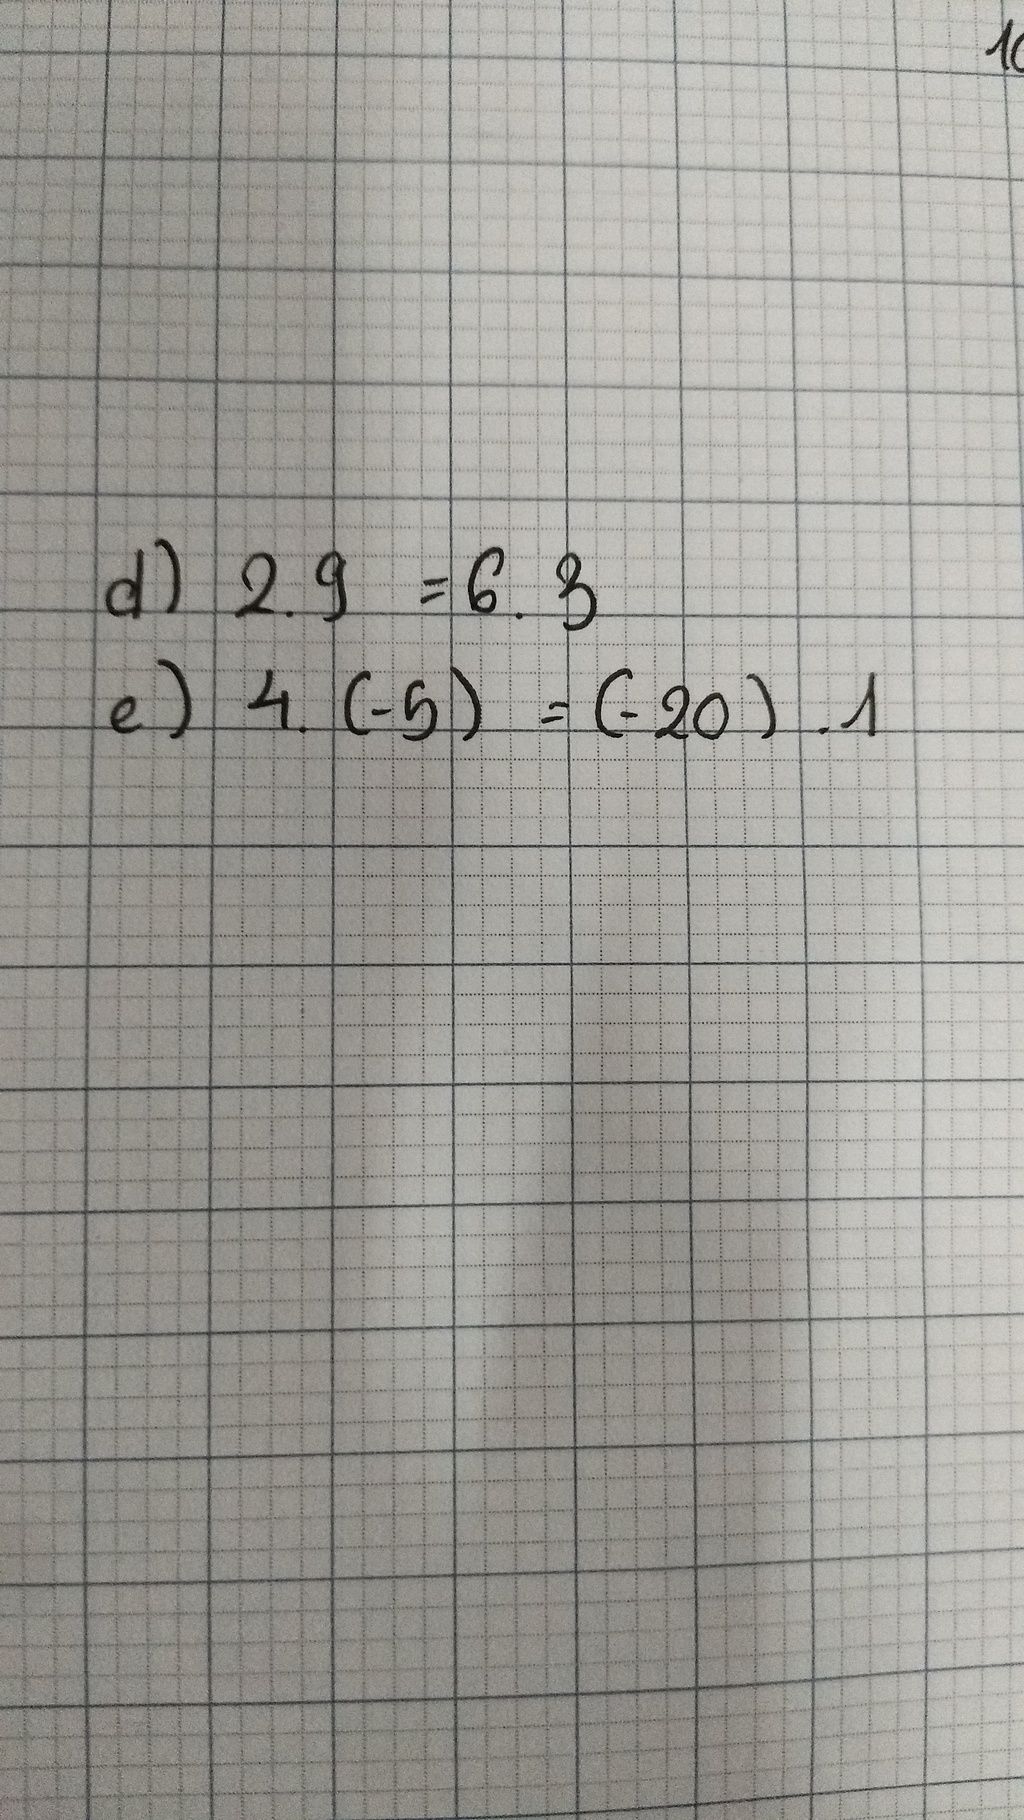 d) 2.9 = 6.3
e) 4.(-5) = (-20).1